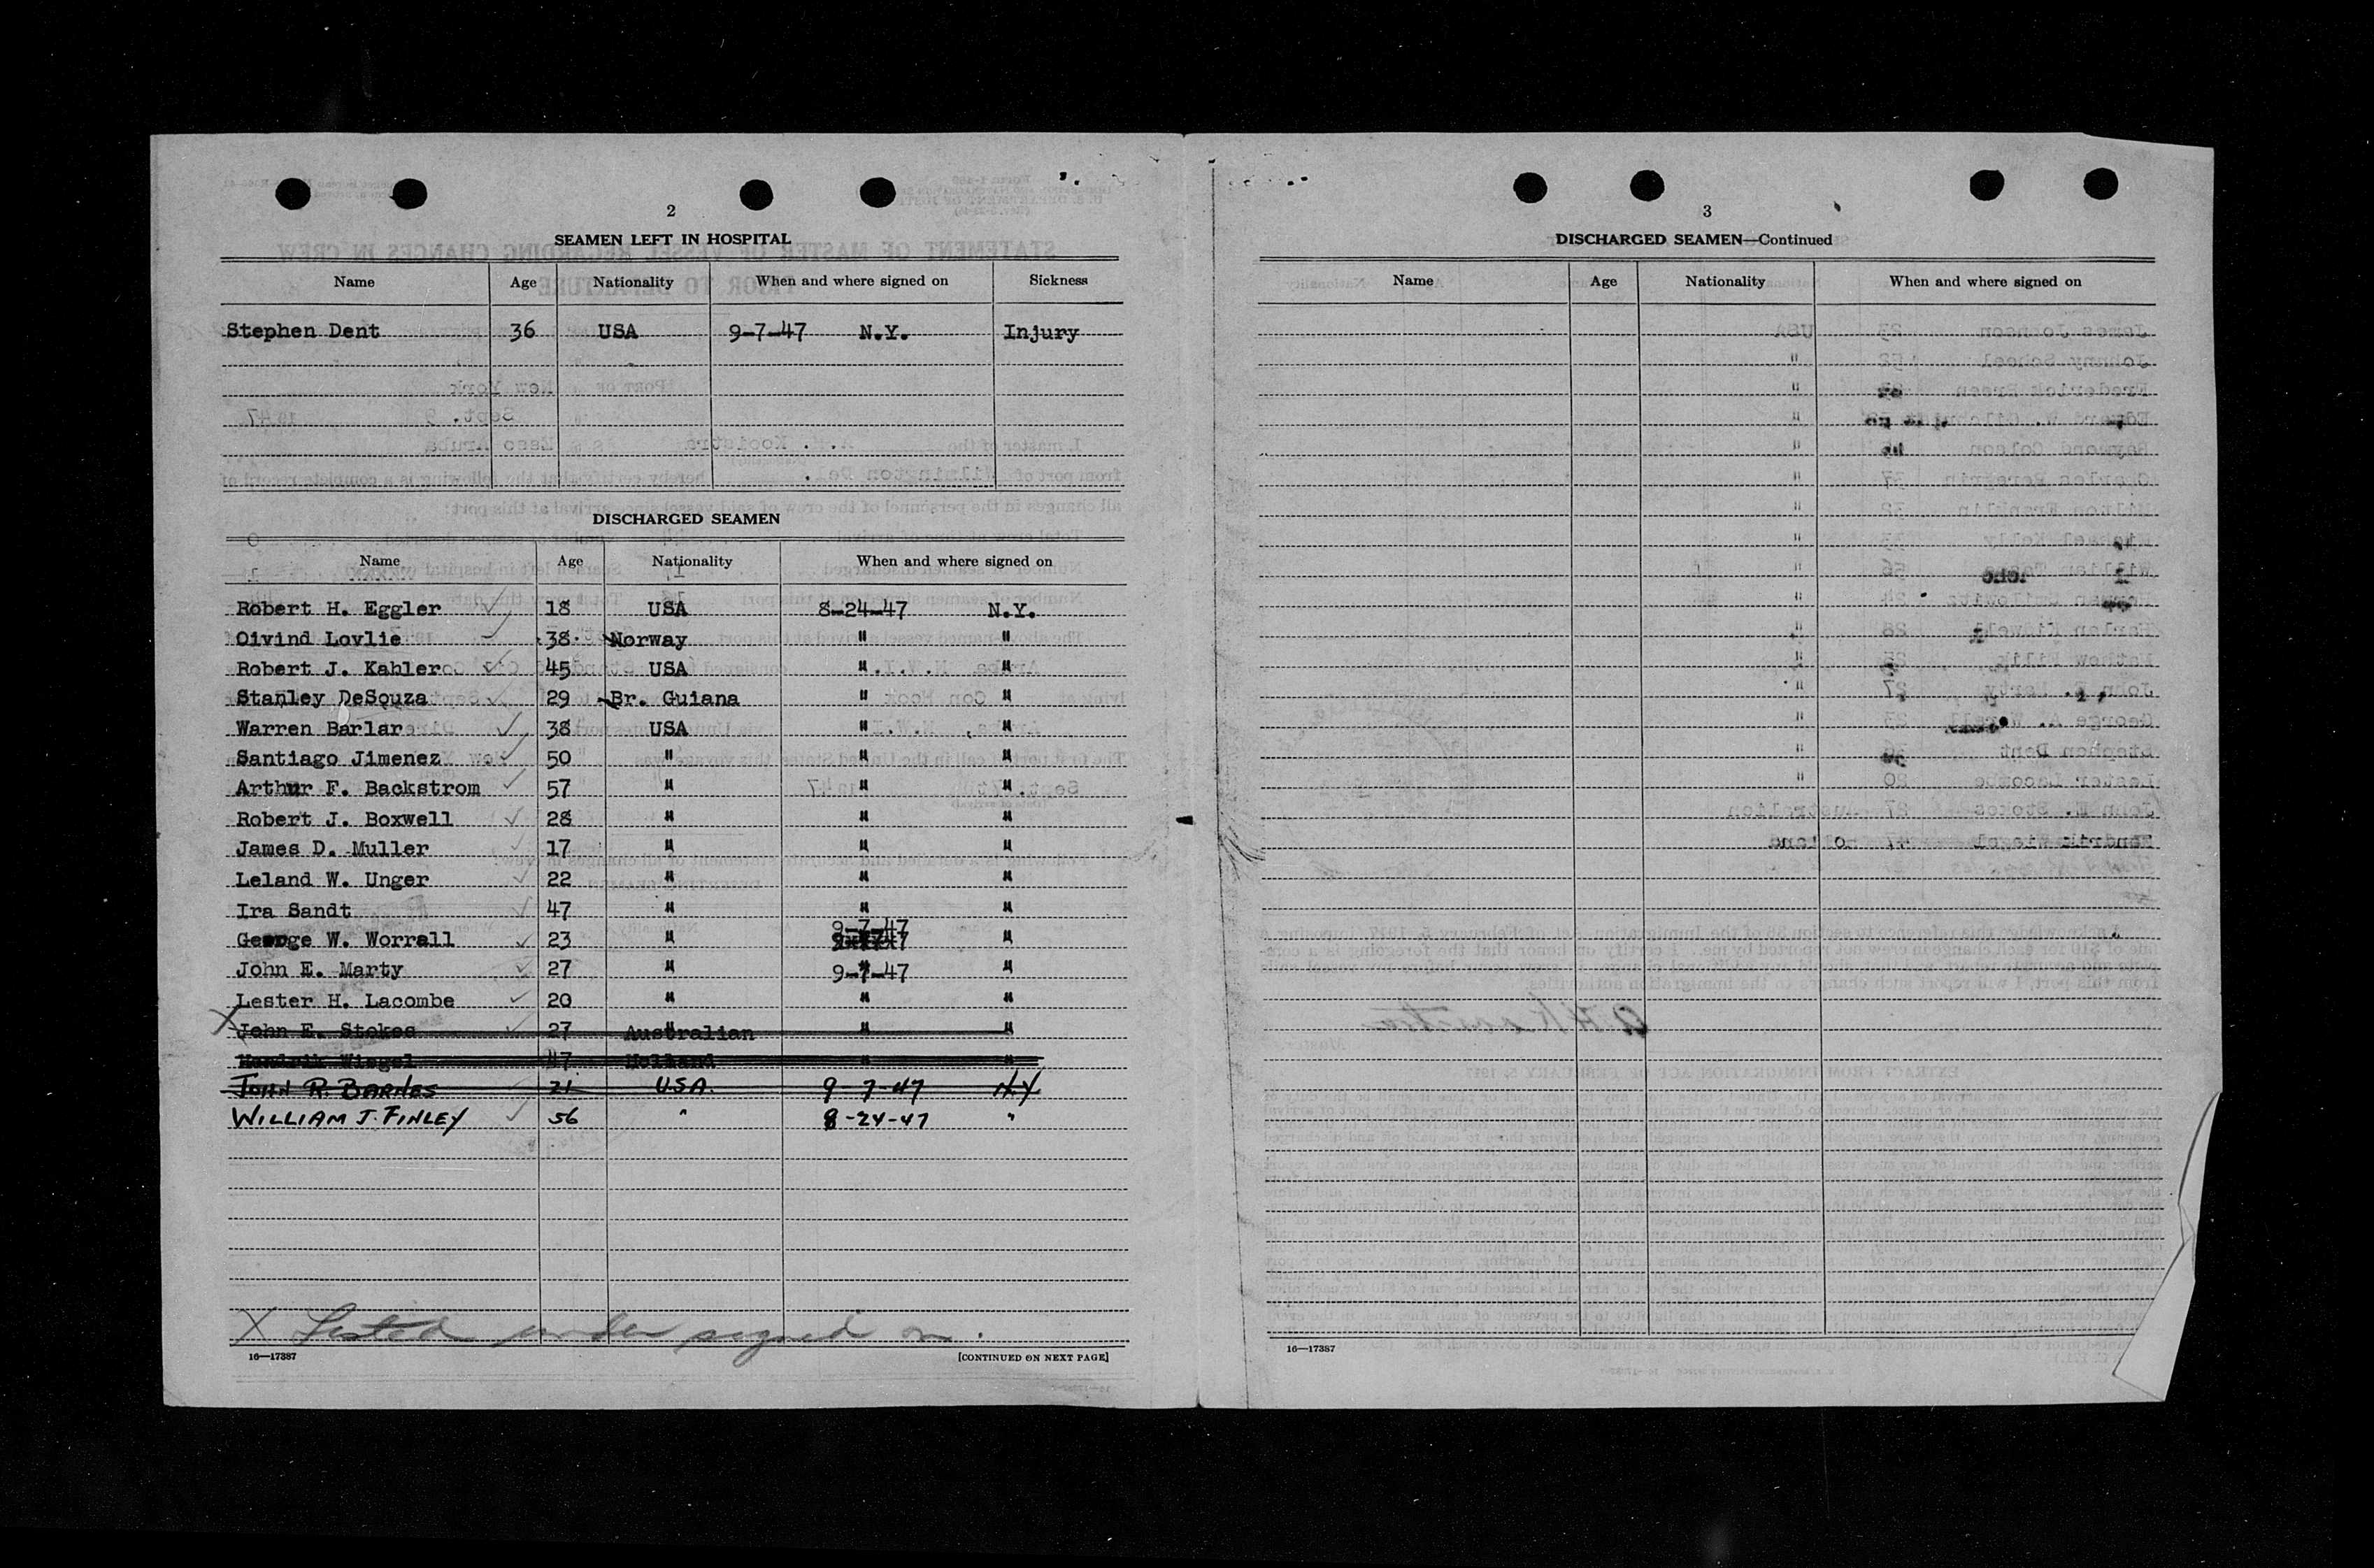 2
SEAMEN LEFT IN HOSPITAL
Name Age Nationality When and where signed on Sickness
Stephen Dent 36 USA 9-7-47 N.Y. Injury
DISCHARGED SEAMEN
Name Age Nationality When and where signed on
Robert H. Eggler ✓ 18 USA 8-24-47 N.Y.
Oivind Lovlie ✓ 38 Norway " "
Robert J. Kahler ✓ 45 USA " "
Stanley DeSouza ✓ 29 Br. Guiana " "
Warren Barlar ✓ 38 USA " "
Santiago Jimenez ✓ 50 " " "
Arthur F. Backstrom ✓ 57 " " "
Robert J. Boxwell ✓ 28 " " "
James D. Muller ✓ 17 " " "
Leland W. Unger ✓ 22 " " "
Ira Sandt ✓ 47 " " "
George W. Worrall ✓ 23 " 9-7-47 "
John E. Marty ✓ 27 " 9-7-47 "
Lester H. Lacombe ✓ 20 " " "
X John E. Stokes ✓ 27 Australian " "
Hendrik Wiegel 47 Holland " "
JOHN R. BARNES 21 U.S.A. 9-7-47 N.Y
WILLIAM J. FINLEY ✓ 56 " 8-24-47 "
X Listed under signed on.
16—17387 [CONTINUED ON NEXT PAGE]
3
DISCHARGED SEAMEN—Continued
Name Age Nationality When and where signed on
16—17387